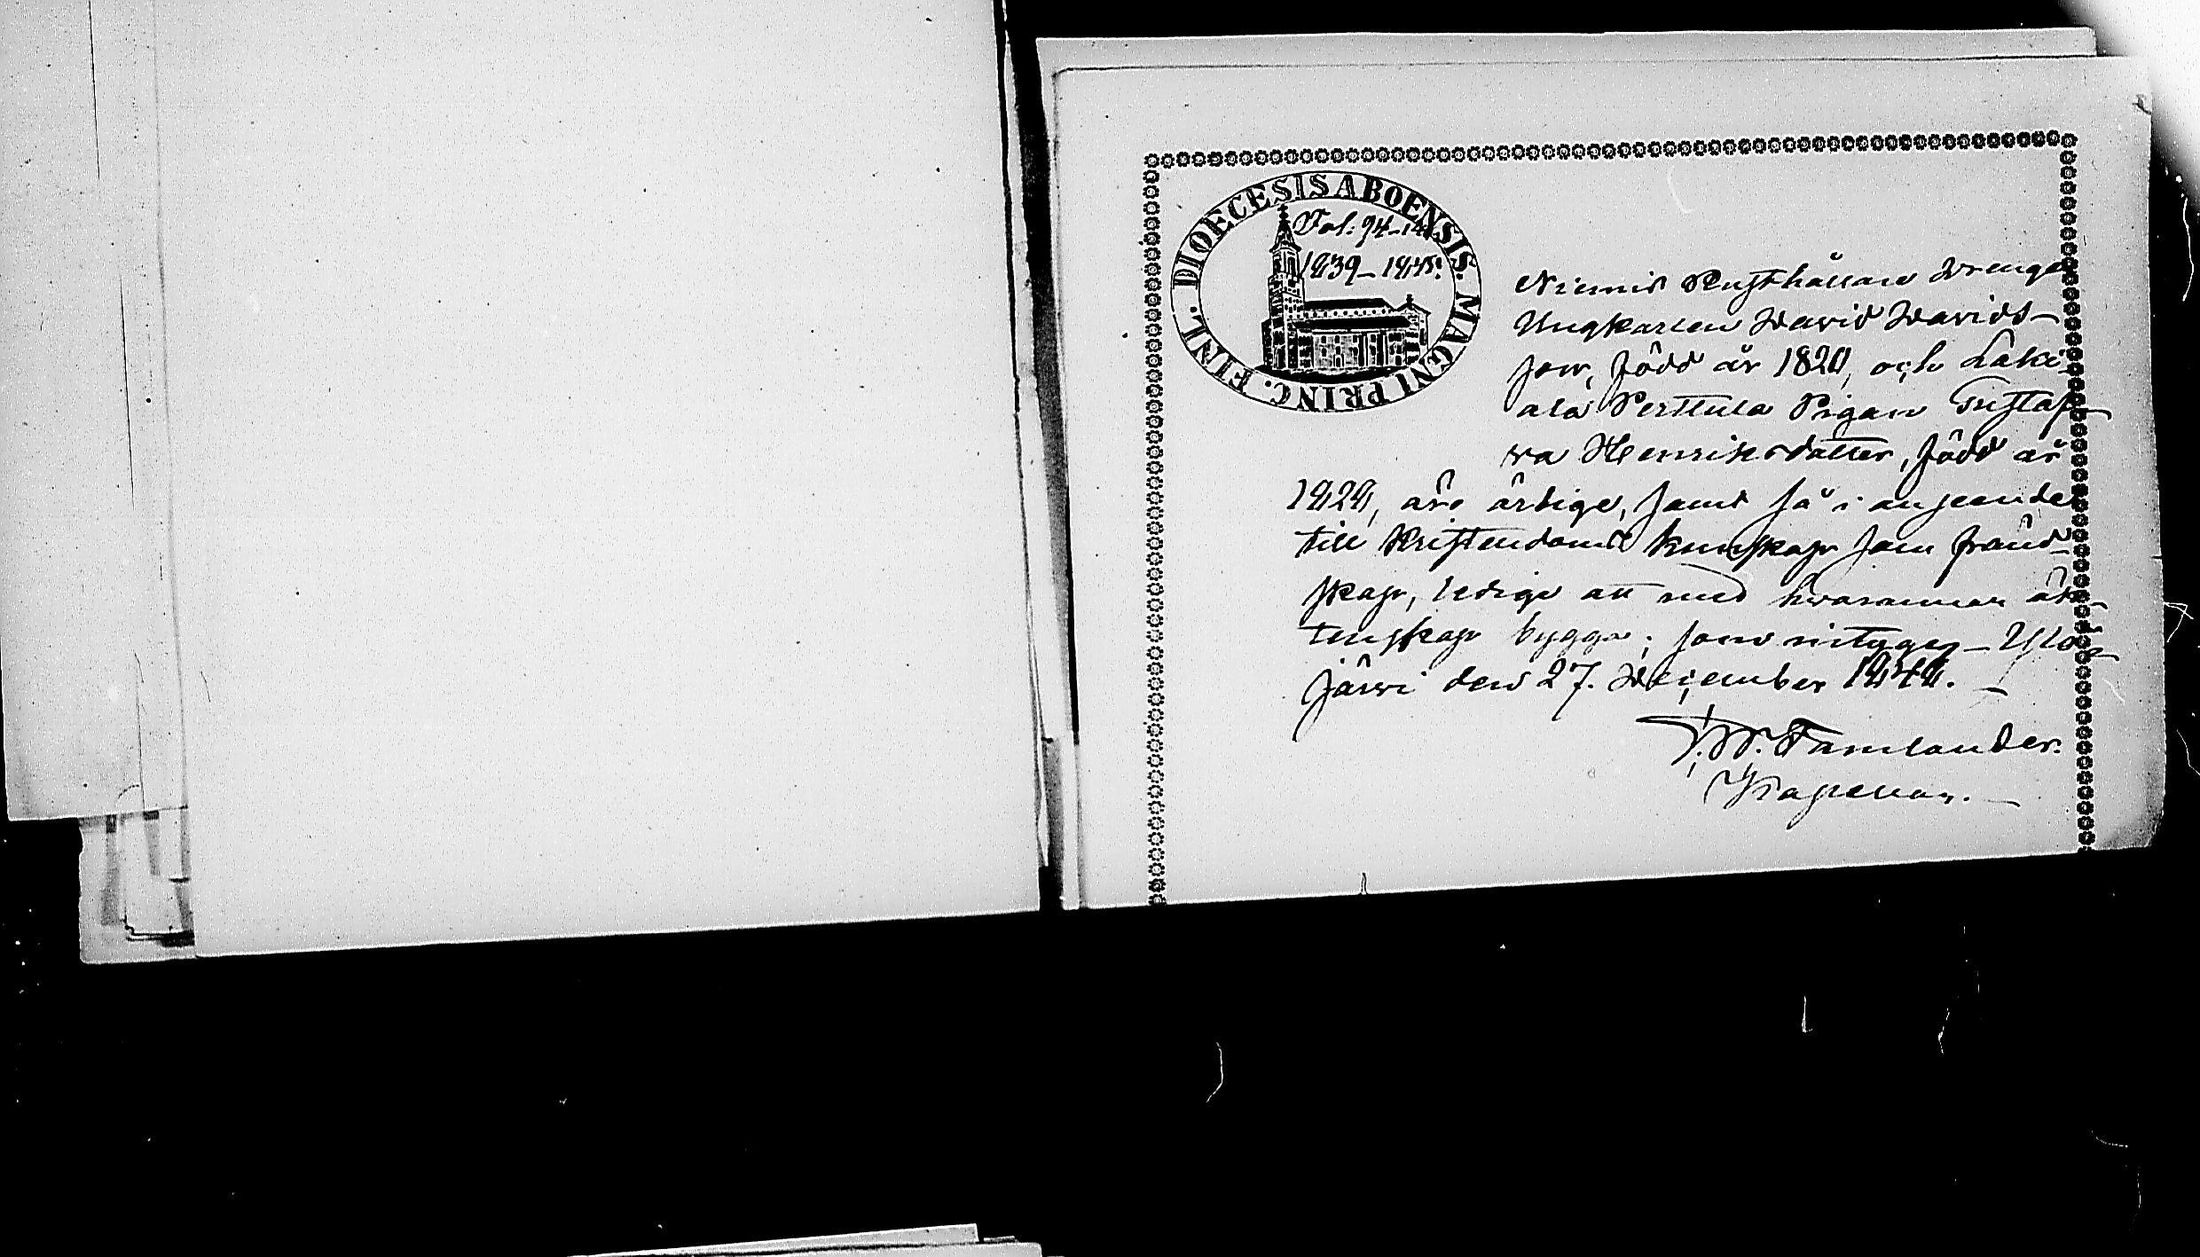 DIOECESIS ABOENSIS. MAGNI PRINC. FINL.
Fol: 94-14
1839-1845.
Niemis Rusthållare Drengen
Ungkarlen David Davids-
son, född år 1820, och Laki-
ala Perttula Pigan Gustaf-
va Henriksdotter, född år
1828, äro ärlige, samt så i anseende
till Kristendoms kunskap som fränd-
skap, ledige att med hvarannan äk-
tenskap bygga; som intygas _ Ylö-
järvi den 27. December 1848. _
F. W. Tamlander.
Kapellan. _